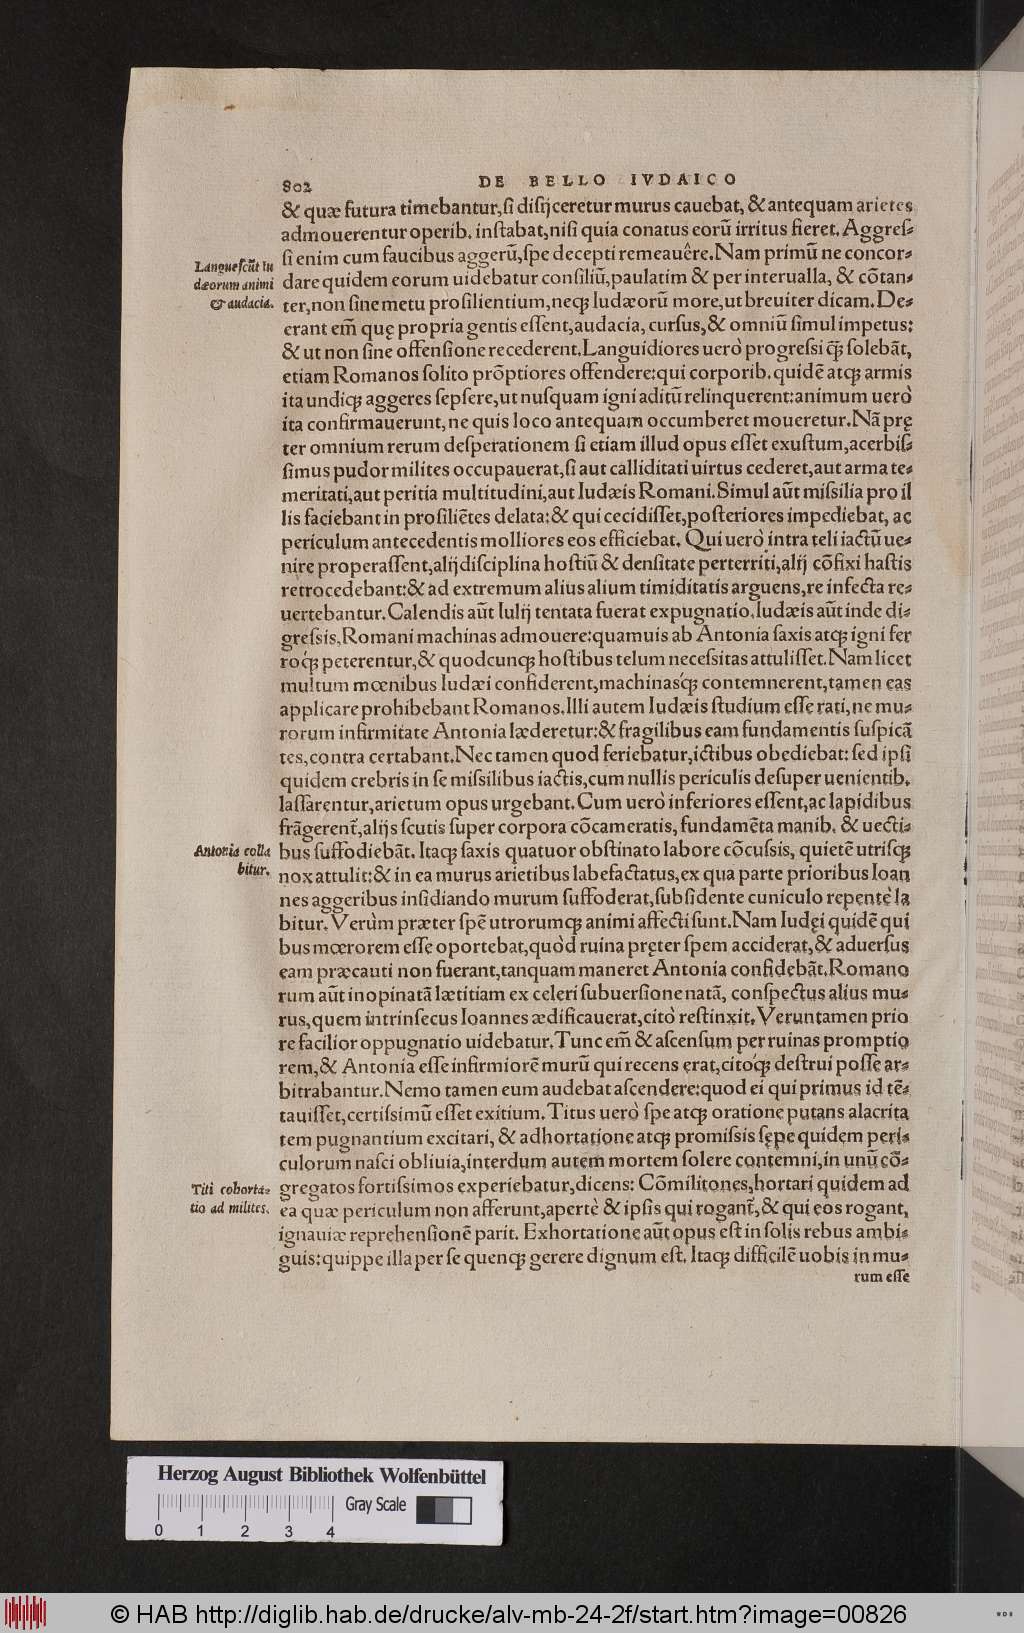 802 DE BELLO IVDAICO
& quæ futura timebantur, ſi diſijceretur murus cauebat, & antequam arietes
admouerentur operib. inſtabat, niſi quia conatus eorũ irritus fieret. Aggreſ-
ſi enim cum faucibus aggerũ, ſpe decepti remeauêre. Nam primũ ne concor-
Langueſcũt Iu
dæorum animi
& audacia.
dare quidem eorum uidebatur conſiliũ, paulatim & per interualla, & cõtan-
ter, non ſine metu proſilientium, neqꝫ Iudæorũ more, ut breuiter dicam. De-
erant em̃ quę propria gentis eſſent, audacia, curſus, & omniũ ſimul impetus:
& ut non ſine offenſione recederent. Languidiores uerò progreſsi q̃ꝫ ſolebãt,
etiam Romanos ſolito prõptiores offendere: qui corporib. quidẽ atqꝫ armis
ita undiqꝫ aggeres ſepſere, ut nuſquam igni aditũ relinquerent: animum uerò
ita confirmauerunt, ne quis loco antequam occumberet moueretur. Nã prę
ter omnium rerum deſperationem ſi etiam illud opus eſſet exuſtum, acerbiſ-
ſimus pudor milites occupauerat, ſi aut calliditati uirtus cederet, aut arma te-
meritati, aut peritia multitudini, aut Iudæis Romani. Simul aũt miſsilia pro il
lis faciebant in proſiliẽtes delata: & qui cecidiſſet, poſteriores impediebat, ac
periculum antecedentis molliores eos efficiebat. Qui uerò intra teli iactũ ue-
nire properaſſent, alij diſciplina hoſtiũ & denſitate perterriti, alij cõfixi haſtis
retrocedebant: & ad extremum alius alium timiditatis arguens, re infecta re-
uertebantur. Calendis aũt Iulij tentata fuerat expugnatio. Iudæis aũt inde di-
greſsis, Romani machinas admouere: quamuis ab Antonia ſaxis atqꝫ igni fer
roq́ꝫ peterentur, & quodcunqꝫ hoſtibus telum neceſsitas attuliſſet. Nam licet
multum mœnibus Iudæi confiderent, machinasq́ꝫ contemnerent, tamen eas
applicare prohibebant Romanos. Illi autem Iudæis ſtudium eſſe rati, ne mu-
rorum infirmitate Antonia læderetur: & fragilibus eam fundamentis ſuſpicã
tes, contra certabant. Nec tamen quod feriebatur, ictibus obediebat: ſed ipſi
quidem crebris in ſe miſsilibus iactis, cum nullis periculis deſuper uenientib.
laſſarentur, arietum opus urgebant. Cum uerò inferiores eſſent, ac lapidibus
frãgerent̃, alijs ſcutis ſuper corpora cõcameratis, fundamẽta manib. & uecti-
Antonia colla
bitur.
bus ſuffodiebãt. Itaqꝫ ſaxis quatuor obſtinato labore cõcuſsis, quietẽ utriſqꝫ
nox attulit: & in ea murus arietibus labefactatus, ex qua parte prioribus Ioan
nes aggeribus inſidiando murum ſuffoderat, ſubſidente cuniculo repentè la
bitur. Verùm præter ſpẽ utrorumqꝫ animi affecti ſunt. Nam Iudęi quidẽ qui
bus mœrorem eſſe oportebat, quòd ruina pręter ſpem acciderat, & aduerſus
eam præcauti non fuerant, tanquam maneret Antonia confidebãt. Romano
rum aũt inopinatã lætitiam ex celeri ſubuerſione natã, conſpectus alius mu-
rus, quem intrinſecus Ioannes ædificauerat, citò reſtinxit. Veruntamen prio
re facilior oppugnatio uidebatur. Tunc em̃ & aſcenſum per ruinas promptio
rem, & Antonia eſſe infirmiorẽ murũ qui recens erat, citóqꝫ deſtrui poſſe ar-
bitrabantur. Nemo tamen eum audebat aſcendere: quod ei qui primus id tẽ-
tauiſſet, certiſsimũ eſſet exitium. Titus uerò ſpe atqꝫ oratione putans alacrita
tem pugnantium excitari, & adhortatione atqꝫ promiſsis ſępe quidem peri-
culorum naſci obliuia, interdum autem mortem ſolere contemni, in unũ cõ-
Titi cohorta-
tio ad milites.
gregatos fortiſsimos experiebatur, dicens: Cõmilitones, hortari quidem ad
ea quæ periculum non afferunt, apertè & ipſis qui rogant̃, & qui eos rogant,
ignauiæ reprehenſionẽ parit. Exhortatione aũt opus eſt in ſolis rebus ambi-
guis: quippe illa per ſe quenqꝫ gerere dignum eſt. Itaqꝫ difficilẽ uobis in mu-
rum eſſe
Herzog August Bibliothek Wolfenbüttel
Gray Scale
0 1 2 3 4
© HAB http://diglib.hab.de/drucke/alv-mb-24-2f/start.htm?image=00826